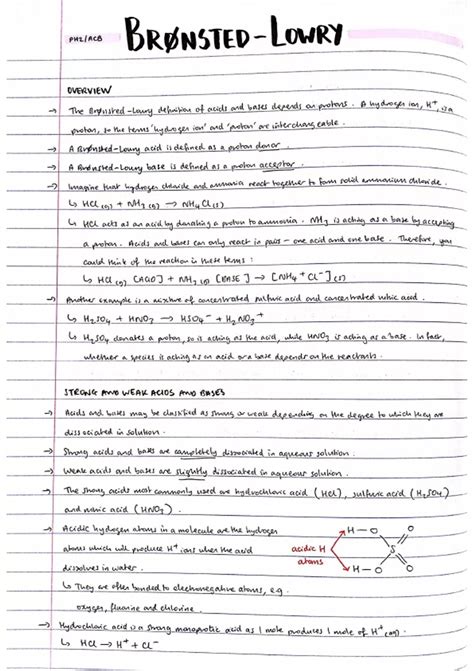 PHZ/ACB
BRØNSTED-LOWRY
OVERVIEW
→ The Brønsted-Lowry definition of acids and bases depends on protons. A hydrogen ion, H⁺, is a
proton, so the terms 'hydrogen ion' and 'proton' are interchangeable.
→ A Brønsted-Lowry acid is defined as a proton donor.
→ A Brønsted-Lowry base is defined as a proton acceptor.
→ Imagine that hydrogen chloride and ammonia react together to form solid ammonium chloride.
↳ HCl(g) + NH₃(g) → NH₄Cl(s)
↳ HCl acts as an acid by donating a proton to ammonia. NH₃ is acting as a base by accepting
a proton. Acids and bases can only react in pairs - one acid and one base. Therefore, you
could think of the reaction in these terms:
↳ HCl(g) [ACID] + NH₃(g) [BASE] → [NH₄⁺Cl⁻](s)
→ Another example is a mixture of concentrated sulfuric acid and concentrated nitric acid.
↳ H₂SO₄ + HNO₃ → HSO₄⁻ + H₂NO₃⁺
↳ H₂SO₄ donates a proton, so is acting as the acid, while HNO₃ is acting as a base. In fact,
whether a species is acting as an acid or a base depends on the reactants.
STRONG AND WEAK ACIDS AND BASES
→ Acids and bases may be classified as strong or weak depending on the degree to which they are
dissociated in solution.
→ Strong acids and bases are completely dissociated in aqueous solution.
→ Weak acids and bases are slightly dissociated in aqueous solution.
→ The strong acids most commonly used are hydrochloric acid (HCl), sulfuric acid (H₂SO₄)
and nitric acid (HNO₃).
→ Acidic hydrogen atoms in a molecule are the hydrogen
atoms which will produce H⁺ ions when the acid
dissolves in water.
↳ They are often bonded to electronegative atoms, e.g.
oxygen, fluorine and chlorine.
acidic H
atoms
H-O
O
S
H-O
O
→ Hydrochloric acid is a strong monoprotic acid as 1 mole produces 1 mole of H⁺(aq).
↳ HCl → H⁺ + Cl⁻